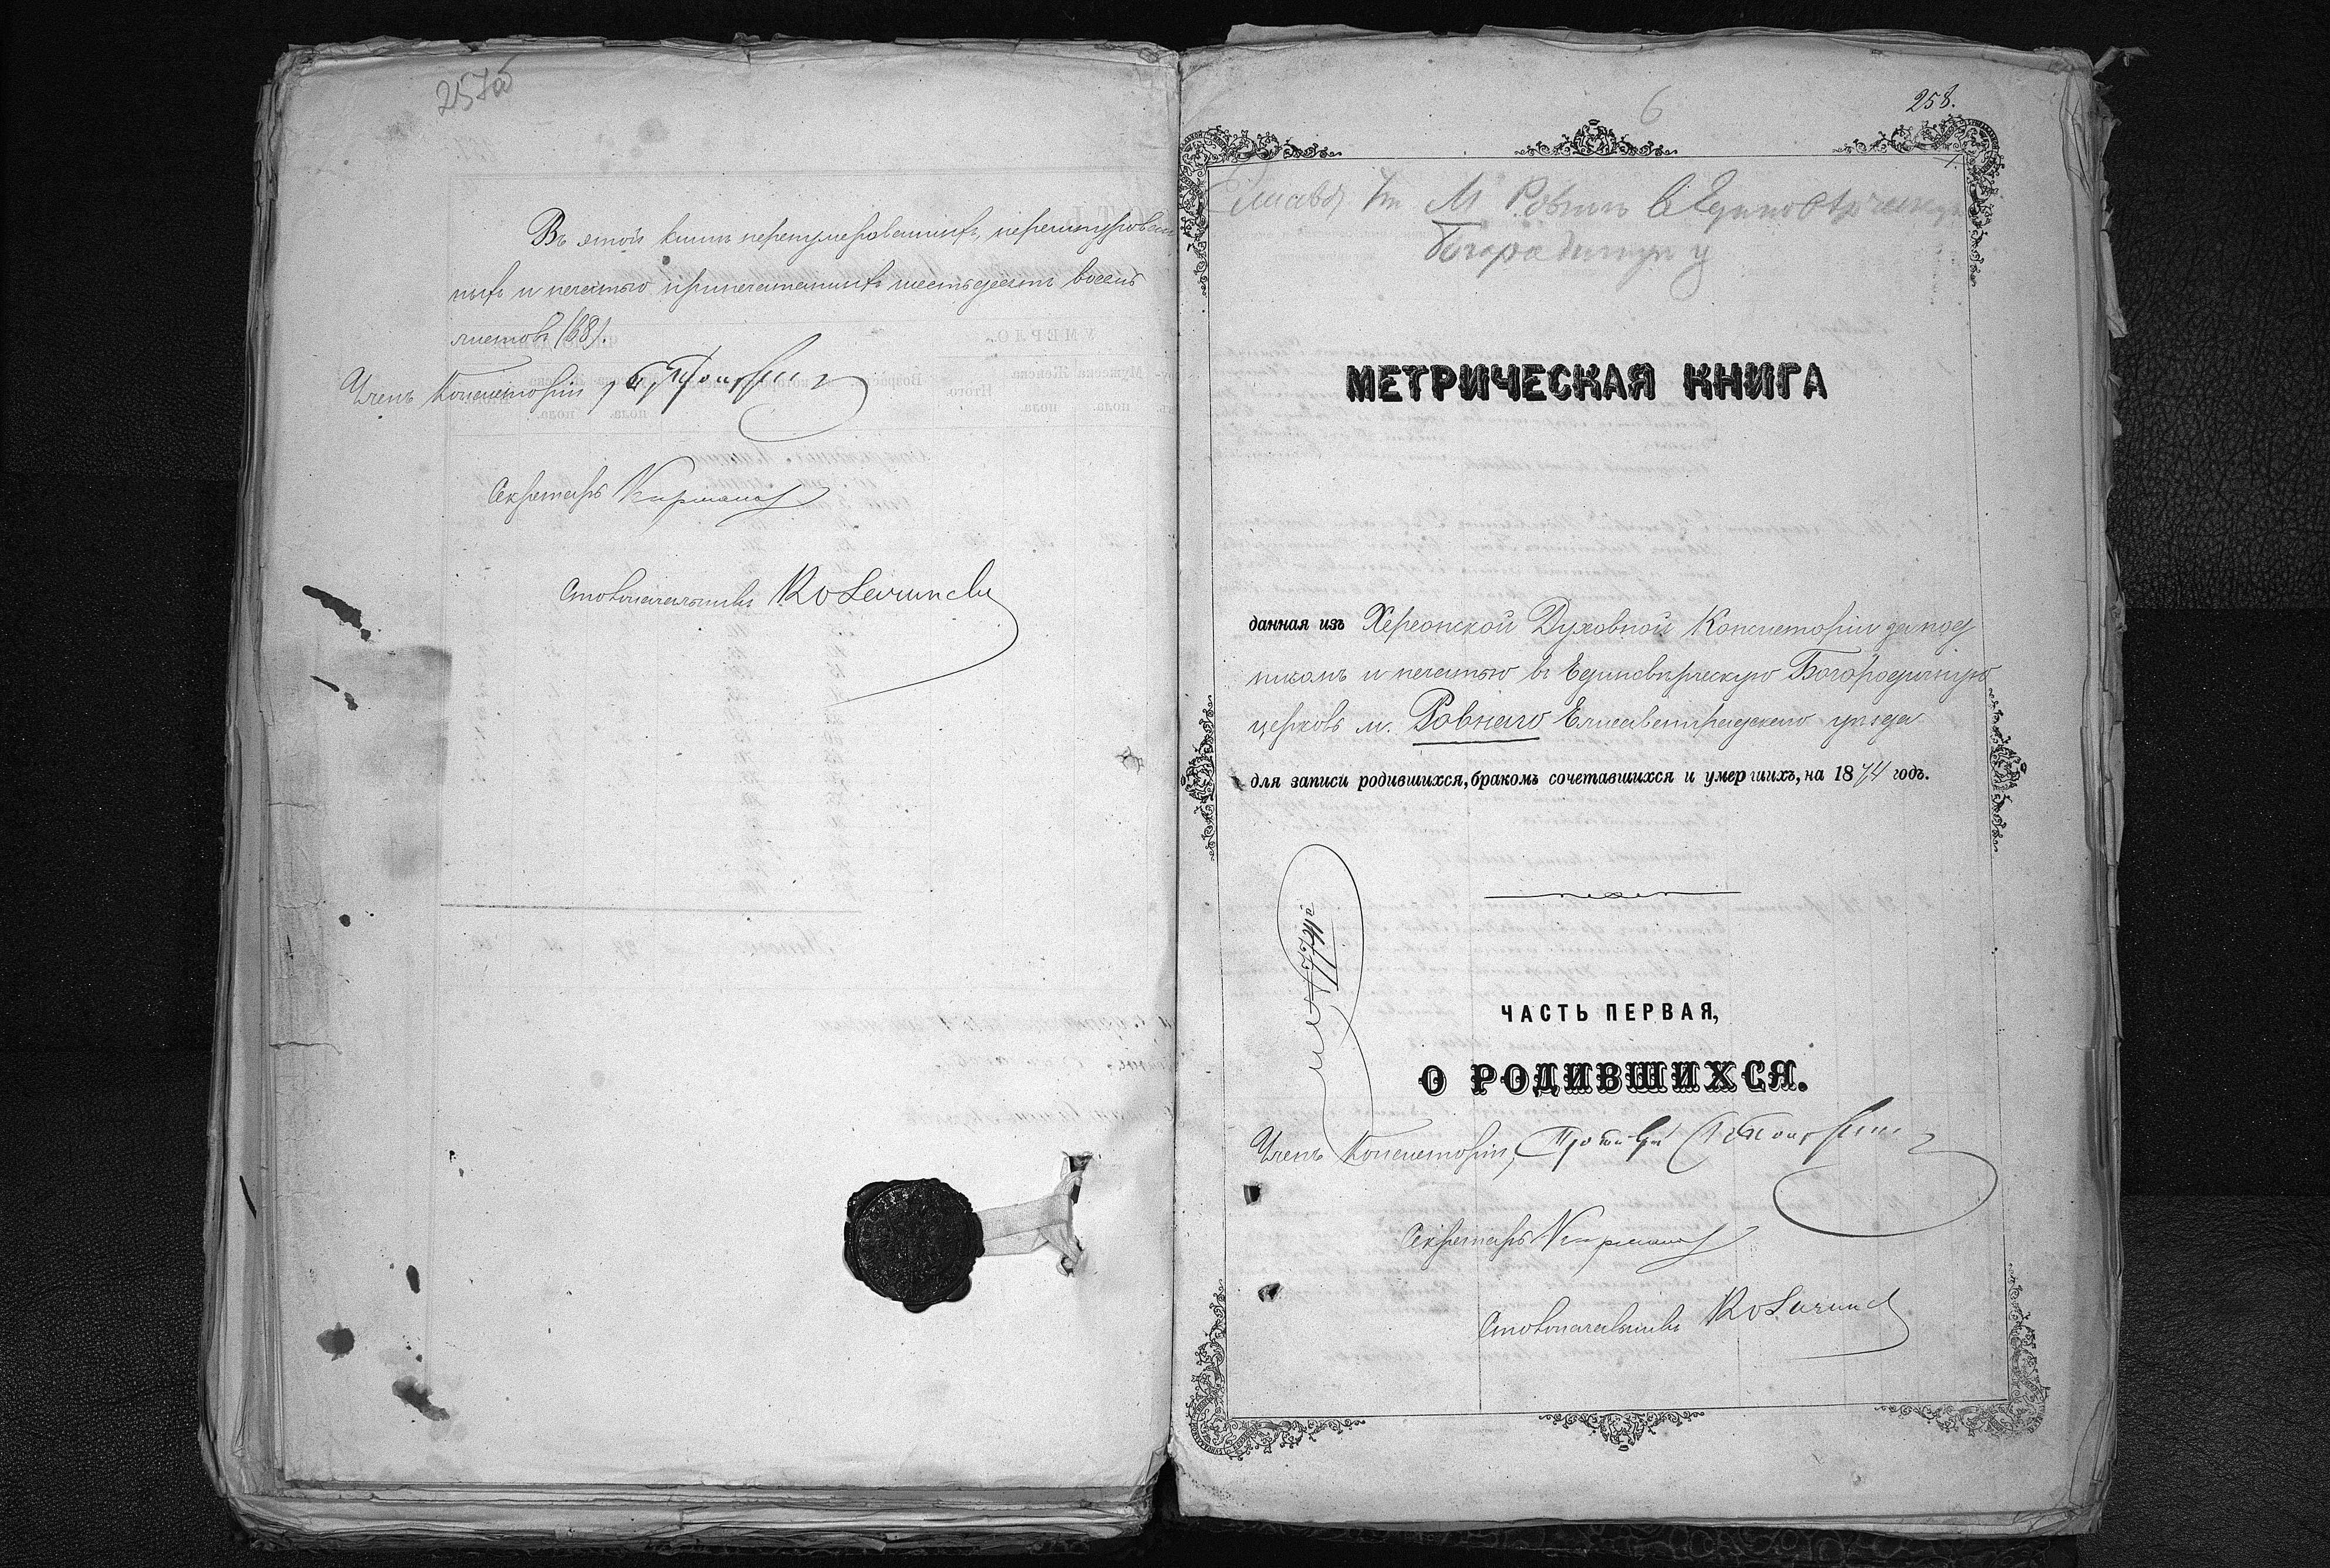 257об
Въ этой книгѣ перенумерованныхъ, перешнурован
ныхъ и печатью припечатанныхъ шестьдесятъ восемь
листовъ (68).
Членъ Консисторіи,
Секретарь
Столоначальникъ
6
258.
Елисавет у м Ровное Единоверческую
Богородичную ц
МЕТРИЧЕСКАЯ КНИГА
данная изъ Херсонской Духовной Консисторіи за под
писомъ и печатью въ Единовѣрческую Богородичную
церковь м. Ровнаго Елисаветградскаго уѣзда
для записи родившихся, бракомъ сочетавшихся и умершихъ, на 1874 годъ.
ЧАСТЬ ПЕРВАЯ,
О РОДИВШИХСЯ.
Членъ Консисторіи, Протоіерей
Секретарь
Столоначальникъ